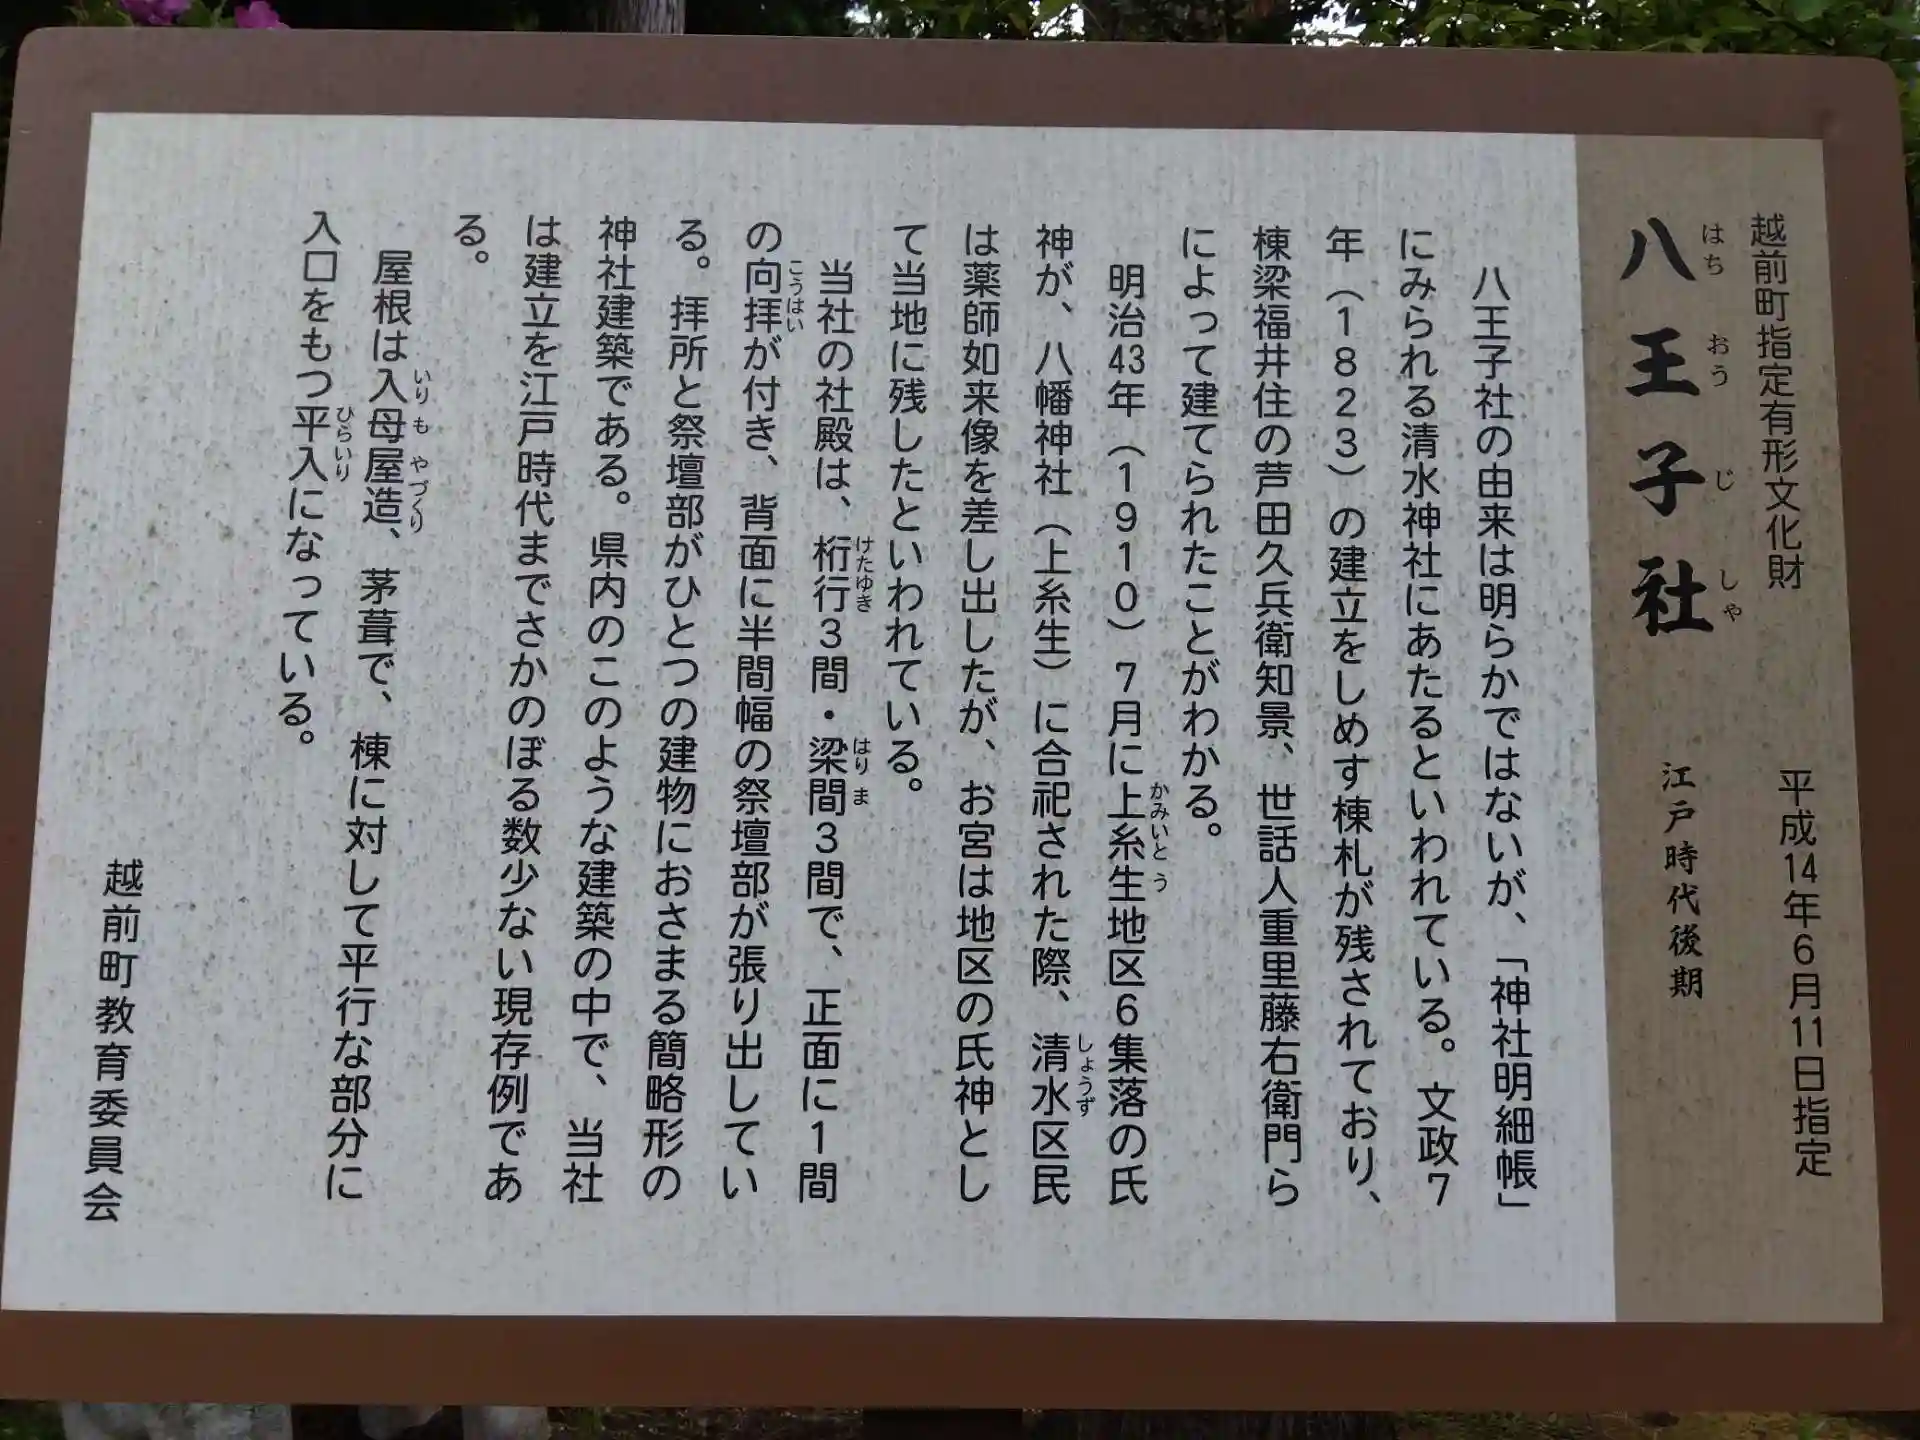 越前町指定有形文化財 平成14年6月11日指定
はち おう じ しゃ
八王子社 江戸時代後期
八王子社の由来は明らかではないが、「神社明細帳」
にみられる清水神社にあたるといわれている。文政7
年（1823）の建立をしめす棟札が残されており、
棟梁福井住の芦田久兵衛知景、世話人重里藤右衛門ら
によって建てられたことがわかる。
かみいとう
明治43年（1910）7月に上糸生地区6集落の氏
しょうず
神が、八幡神社（上糸生）に合祀された際、清水区民
は薬師如来像を差し出したが、お宮は地区の氏神とし
て当地に残したといわれている。
けたゆき はりま
当社の社殿は、桁行3間・梁間3間で、正面に1間
こうはい
の向拝が付き、背面に半間幅の祭壇部が張り出してい
る。拝所と祭壇部がひとつの建物におさまる簡略形の
神社建築である。県内のこのような建築の中で、当社
は建立を江戸時代までさかのぼる数少ない現存例であ
る。
いりもやづくり
屋根は入母屋造、茅葺で、棟に対して平行な部分に
ひらいり
入口をもつ平入になっている。
越前町教育委員会